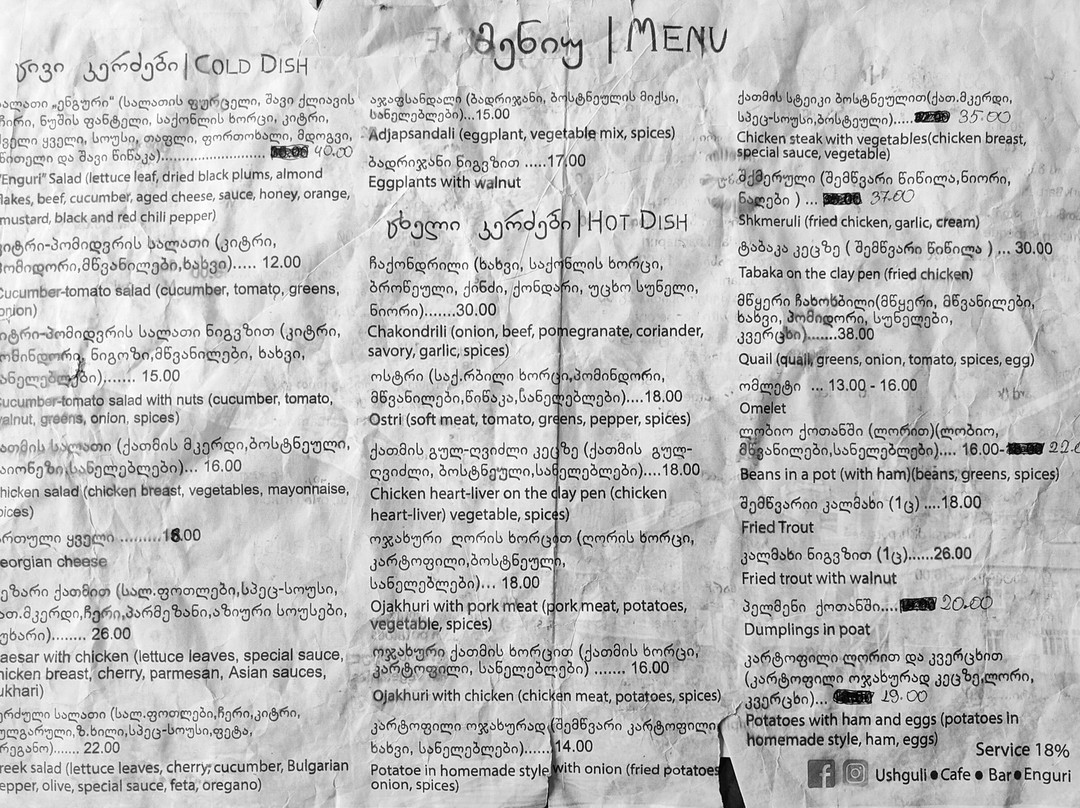 მენიუ | MENU
ცივი კერძები | COLD DISH
სალათი „ენგური“ (სალათის ფურცელი, შავი ქლიავის
ჩირი, ნუშის ფანტელი, საქონლის ხორცი, კიტრი,
ძველი ყველი, სოუსი, თაფლი, ფორთოხალი, მდოგვი,
წითელი და შავი წიწაკა)........................ 40.00
"Enguri" Salad (lettuce leaf, dried black plums, almond
flakes, beef, cucumber, aged cheese, sauce, honey, orange,
mustard, black and red chili pepper)
კიტრი-პომიდვრის სალათი (კიტრი,
პომიდორი,მწვანილები,ხახვი)..... 12.00
Cucumber-tomato salad (cucumber, tomato, greens,
onion)
კიტრი-პომიდვრის სალათი ნიგვზით (კიტრი,
პომინდორი, ნიგოზი,მწვანილები, ხახვი,
სანელებლები)....... 15.00
Cucumber-tomato salad with nuts (cucumber, tomato,
walnut, greens, onion, spices)
ქათმის სალათი (ქათმის მკერდი,ბოსტნეული,
მაიონეზი,სანელებლები)... 16.00
Chicken salad (chicken breast, vegetables, mayonnaise,
spices)
ქართული ყველი .........18.00
Georgian cheese
ცეზარი ქათმით (სალ.ფოთლები,სპეც-სოუსი,
ქათ.მკერდი,ჩერი,პარმეზანი,აზიური სოუსები,
სუხარი)........ 26.00
Caesar with chicken (lettuce leaves, special sauce,
chicken breast, cherry, parmesan, Asian sauces,
sukhari)
ბერძული სალათი (სალ.ფოთლები,ჩერი,კიტრი,
ბულგარული,ზ.ხილი,სპეც-სოუსი,ფეტა,
ორეგანო)....... 22.00
Greek salad (lettuce leaves, cherry, cucumber, Bulgarian
pepper, olive, special sauce, feta, oregano)
აჯაფსანდალი (ბადრიჯანი, ბოსტნეულის მიქსი,
სანელებლები)...15.00
Adjapsandali (eggplant, vegetable mix, spices)
ბადრიჯანი ნიგვზით .....17.00
Eggplants with walnut
ცხელი კერძები | HOT DISH
ჩაქონდრილი (ხახვი, საქონლის ხორცი,
ბროწეული, ქინძი, ქონდარი, უცხო სუნელი,
ნიორი).......30.00
Chakondrili (onion, beef, pomegranate, coriander,
savory, garlic, spices)
ოსტრი (საქ.რბილი ხორცი,პომინდორი,
მწვანილები,წიწაკა,სანელებლები)....18.00
Ostri (soft meat, tomato, greens, pepper, spices)
ქათმის გულ-ღვიძლი კეცზე (ქათმის გულ-
ღვიძლი, ბოსტნეული,სანელებლები)....18.00
Chicken heart-liver on the clay pen (chicken
heart-liver) vegetable, spices)
ოჯახური ღორის ხორცით (ღორის ხორცი,
კარტოფილი,ბოსტნეული,
სანელებლები)... 18.00
Ojakhuri with pork meat (pork meat, potatoes,
vegetable, spices)
ოჯახური ქათმის ხორცით (ქათმის ხორცი,
კარტოფილი, სანელებლები) ....... 16.00
Ojakhuri with chicken (chicken meat, potatoes, spices)
კარტოფილი ოჯახურად (შემწვარი კარტოფილი,
ხახვი, სანელებლები)......14.00
Potatoe in homemade style with onion (fried potatoes
onion, spices)
ქათმის სტეიკი ბოსტნეულით(ქათ.მკერდი,
სპეც-სოუსი,ბოსტეული).... 35.00
Chicken steak with vegetables(chicken breast,
special sauce, vegetable)
შქმერული (შემწვარი წიწილა,ნიორი,
ნაღები ) ... 37.00
Shkmeruli (fried chicken, garlic, cream)
ტაბაკა კეცზე ( შემწვარი წიწილა ) ... 30.00
Tabaka on the clay pen (fried chicken)
მწყერი ჩახოხბილი(მწყერი, მწვანილები,
ხახვი, პომიდორი, სუნელები,
კვერცხი).......38.00
Quail (quail, greens, onion, tomato, spices, egg)
ომლეტი ... 13.00 - 16.00
Omelet
ლობიო ქოთანში (ლორით)(ლობიო,
მწვანილები,სანელებლები).... 16.00- 22.0
Beans in a pot (with ham)(beans, greens, spices)
შემწვარიი კალმახი (1ც) ....18.00
Fried Trout
კალმახი ნიგვზით (1ც)......26.00
Fried trout with walnut
პელმენი ქოთანში.... 20.00
Dumplings in poat
კარტოფილი ლორით და კვერცხით
(კარტოფილი ოჯახურად კეცზე,ლორი,
კვერცხი)... 29.00
Potatoes with ham and eggs (potatoes in
homemade style, ham, eggs)
Service 18%
Ushguli • Cafe • Bar • Enguri